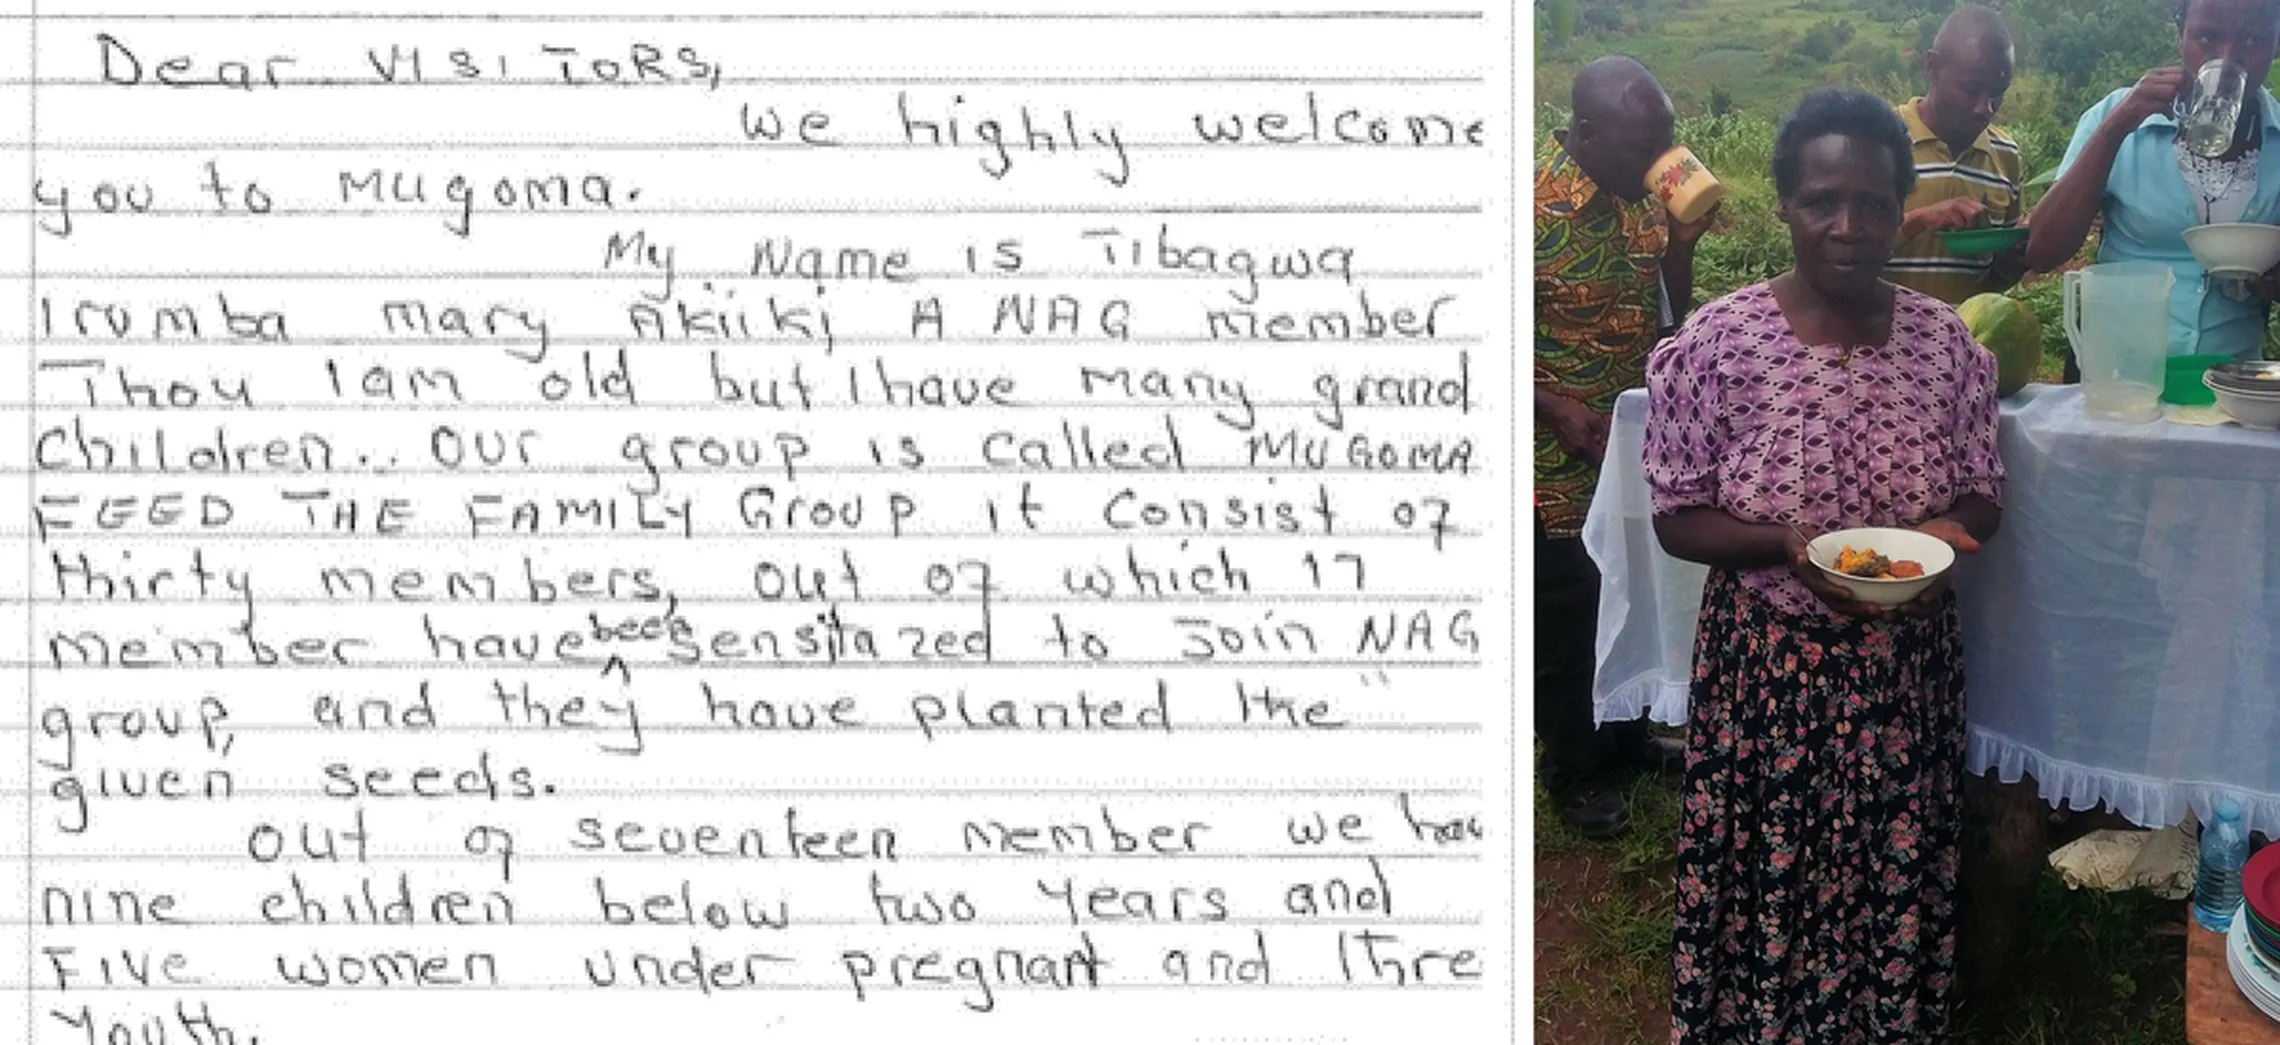 Dear VISITORS,
we highly welcome
you to Mugoma.
My Name is Tibagwa
Irumba mary Akiiki A NAG member
Thou I am old but I have many grand
children.. our group is called MUGOMA
FEED THE FAMILY Group it consist of
thirty members, out of which 17
member have been sensitazed to Join NAG
group, and they have planted the
given seeds.
out of seventeen member we hav
nine children below two years and
Five women under pregnant and thre
Youth.